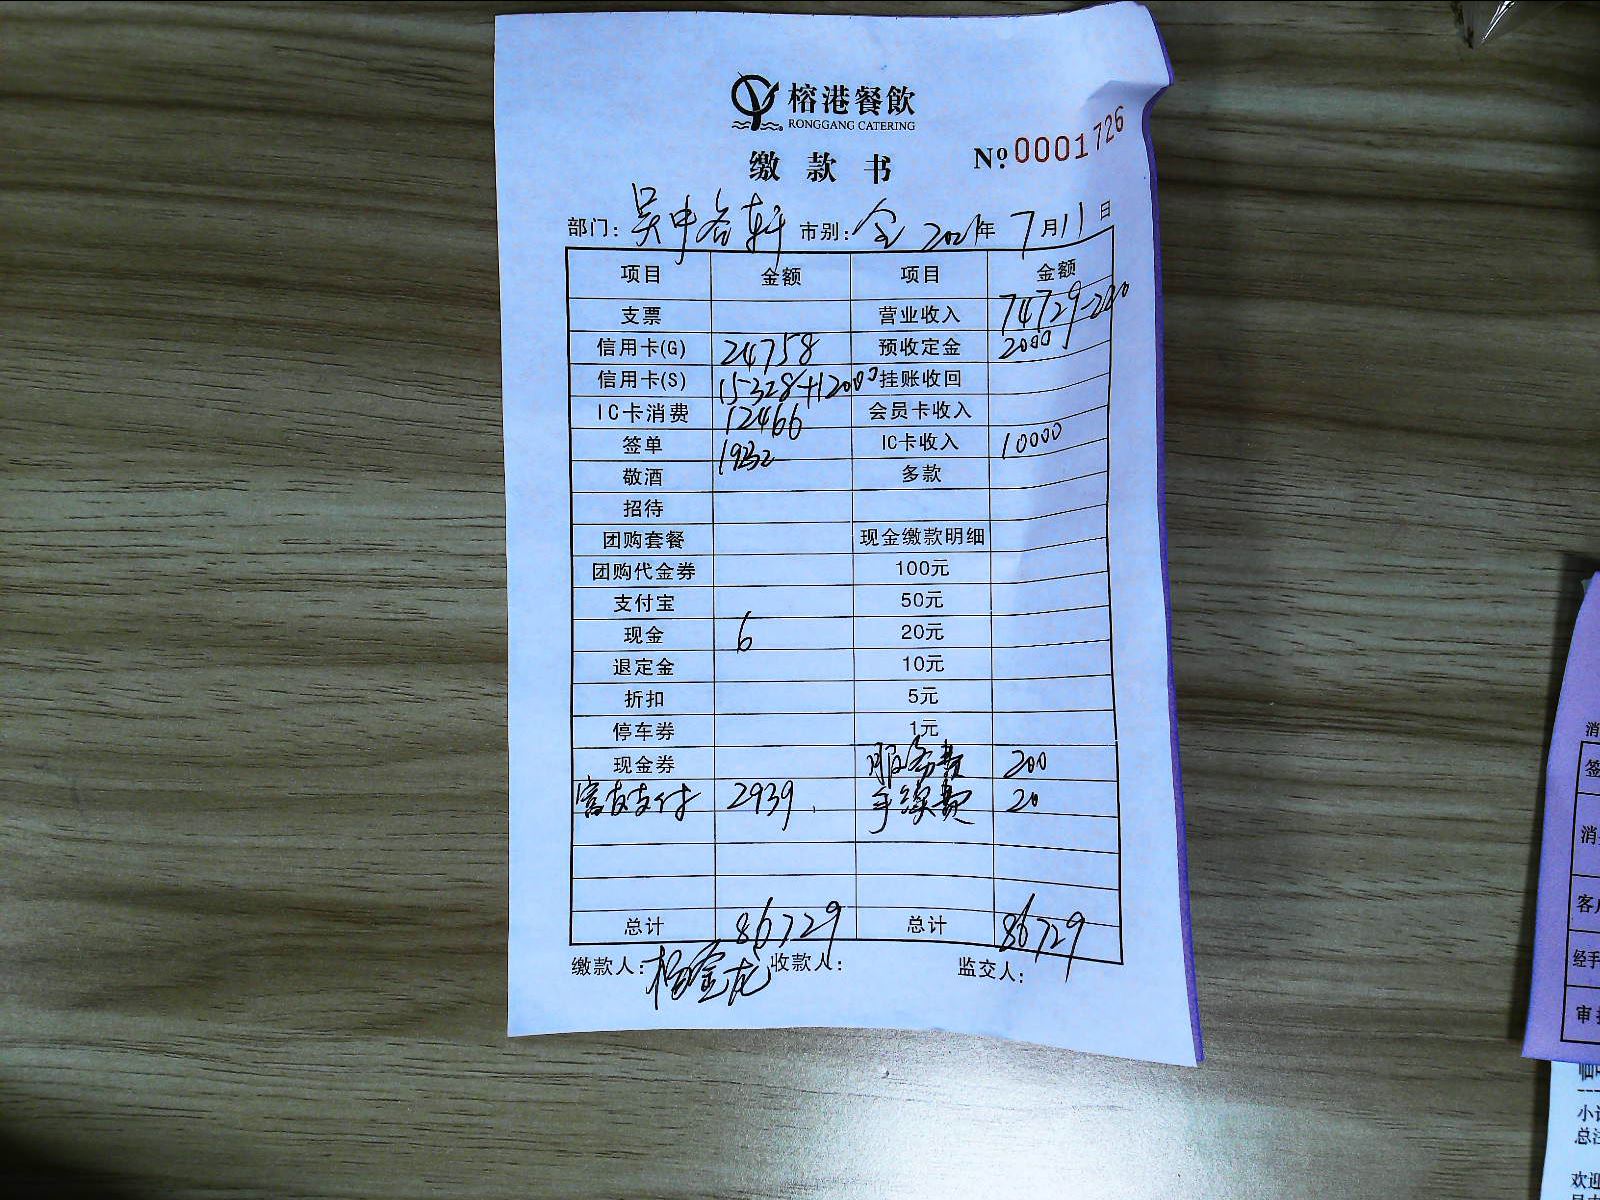 榕港餐飲
RONGGANG CATERING
缴款书 № 0001726
部门: 吴中 轩 市别: 全 2021年7月11日
项目 金额 项目 金额
支票 营业收入 74729-220
信用卡(G) 24758 预收定金 2000
信用卡(S) 15328+12000 挂账收回
IC卡消费 12466 会员卡收入
签单 1932 IC卡收入 10000
敬酒 多款
招待
团购套餐 现金缴款明细
团购代金券 100元
支付宝 50元
现金 6 20元
退定金 10元
折扣 5元
停车券 1元
现金券 服务费 200
支付 2939 手续费 20
总计 86729 总计 86729
缴款人: 杨金龙 收款人: 监交人:
消
签
消
客户
经手
审
小计
总注
欢迎